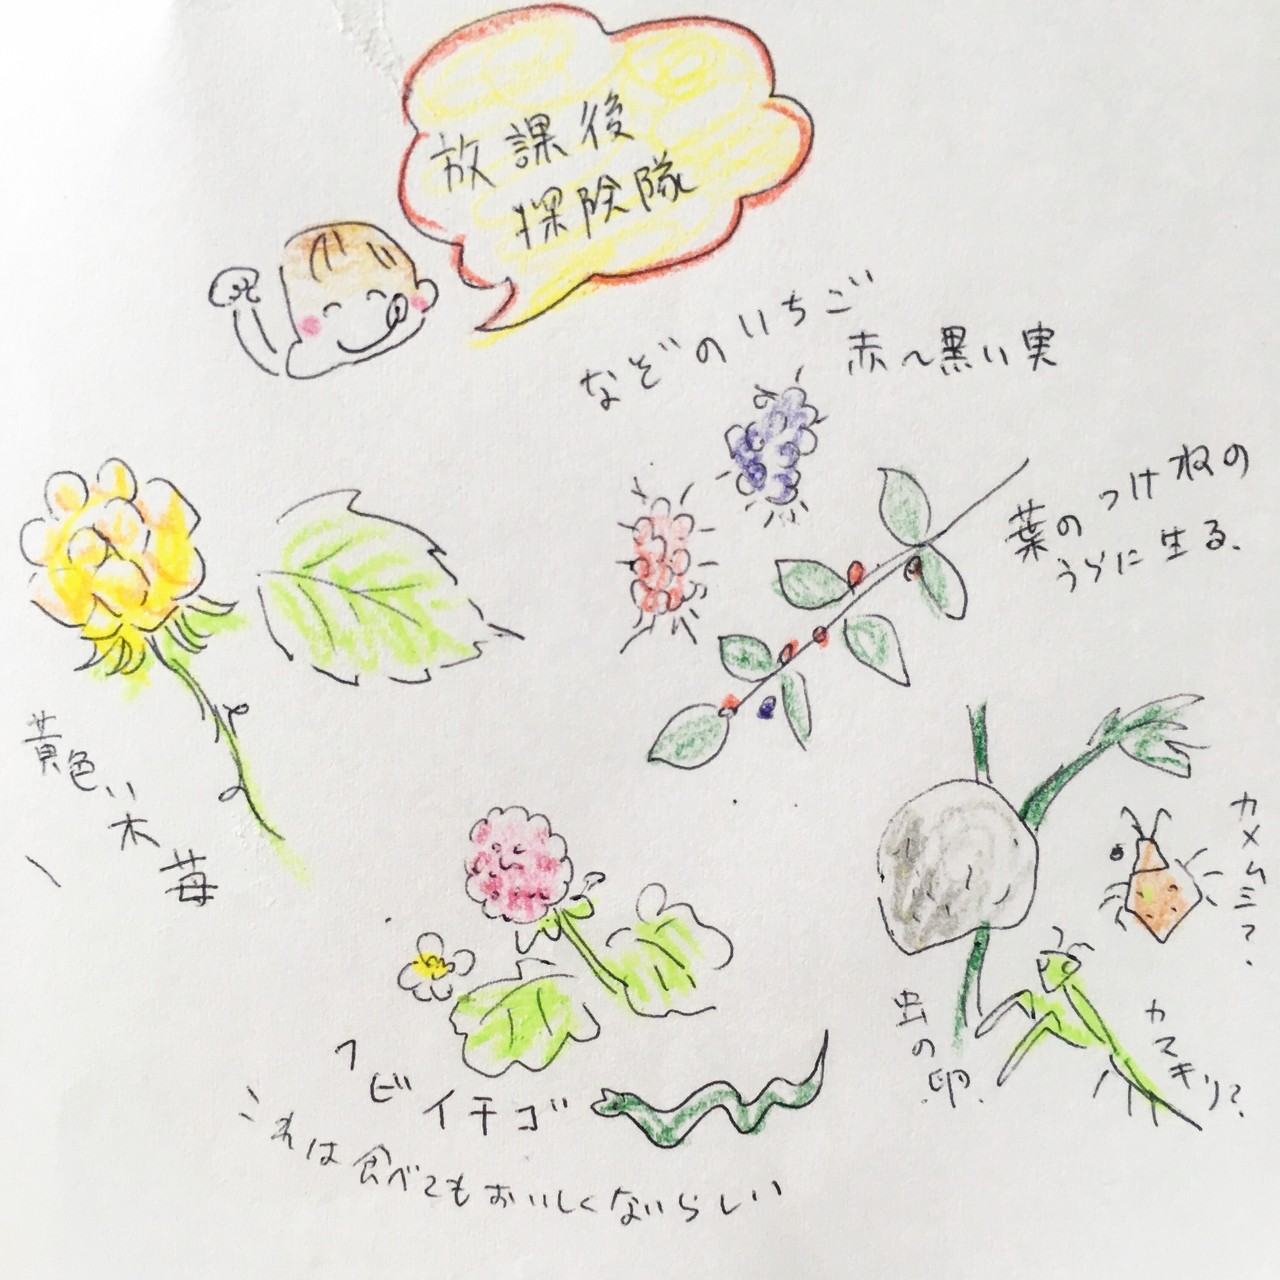 放課後
探険隊
なぞのいちご
赤〜黒い実
葉のつけねの
うらに生る、
黄色い木苺
カメムシ?
虫の卵
カマキリ?
ヘビイチゴ
これは食べてもおいしくないらしい